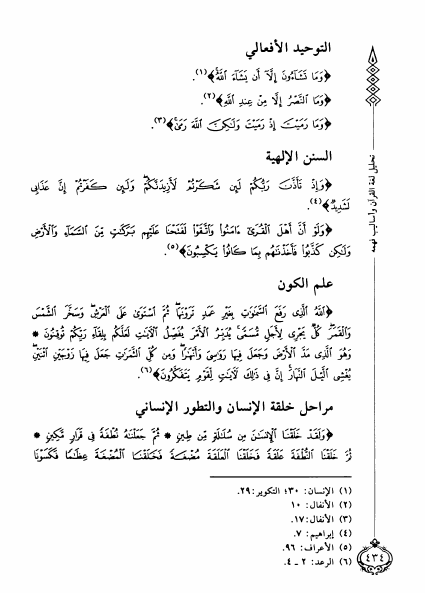 التوحيد الأفعالي
﴿وَمَا تَشَاءُونَ إِلَّا أَن يَشَاءَ اللَّهُ﴾(١).
﴿وَمَا النَّصْرُ إِلَّا مِنْ عِندِ اللَّهِ﴾(٢).
﴿وَمَا رَمَيْتَ إِذْ رَمَيْتَ وَلَٰكِنَّ اللَّهَ رَمَىٰ﴾(٣).
السنن الإلهية
﴿وَإِذْ تَأَذَّنَ رَبُّكُمْ لَئِن شَكَرْتُمْ لَأَزِيدَنَّكُمْ وَلَئِن كَفَرْتُمْ إِنَّ عَذَابِي
لَشَدِيدٌ﴾(٤).
﴿وَلَوْ أَنَّ أَهْلَ الْقُرَىٰ ءَامَنُوا وَاتَّقَوْا لَفَتَحْنَا عَلَيْهِم بَرَكَٰتٍ مِّنَ السَّمَاءِ وَالْأَرْضِ
وَلَٰكِن كَذَّبُوا فَأَخَذْنَٰهُم بِمَا كَانُوا يَكْسِبُونَ﴾(٥).
علم الكون
﴿اللَّهُ الَّذِي رَفَعَ السَّمَٰوَٰتِ بِغَيْرِ عَمَدٍ تَرَوْنَهَا ثُمَّ اسْتَوَىٰ عَلَى الْعَرْشِ وَسَخَّرَ الشَّمْسَ
وَالْقَمَرَ كُلٌّ يَجْرِي لِأَجَلٍ مُّسَمًّى يُدَبِّرُ الْأَمْرَ يُفَصِّلُ الْآيَٰتِ لَعَلَّكُم بِلِقَاءِ رَبِّكُمْ تُوقِنُونَ *
وَهُوَ الَّذِي مَدَّ الْأَرْضَ وَجَعَلَ فِيهَا رَوَٰسِيَ وَأَنْهَٰرًا وَمِن كُلِّ الثَّمَرَٰتِ جَعَلَ فِيهَا زَوْجَيْنِ اثْنَيْنِ
يُغْشِي الَّيْلَ النَّهَارَ إِنَّ فِي ذَٰلِكَ لَآيَٰتٍ لِّقَوْمٍ يَتَفَكَّرُونَ﴾(٦).
مراحل خلقة الإنسان والتطور الإنساني
﴿وَلَقَدْ خَلَقْنَا الْإِنسَٰنَ مِن سُلَٰلَةٍ مِّن طِينٍ * ثُمَّ جَعَلْنَٰهُ نُطْفَةً فِي قَرَارٍ مَّكِينٍ *
ثُمَّ خَلَقْنَا النُّطْفَةَ عَلَقَةً فَخَلَقْنَا الْعَلَقَةَ مُضْغَةً فَخَلَقْنَا الْمُضْغَةَ عِظَٰمًا فَكَسَوْنَا
(١) الإنسان: ٣٠؛ التكوير: ٢٩.
(٢) الأنفال: ١٠
(٣) الأنفال: ١٧.
(٤) إبراهيم: ٧.
(٥) الأعراف: ٩٦.
(٦) الرعد: ٢ ـ ٤.
تحليل لغة القرآن وأساليب فهمه
٤٣٤